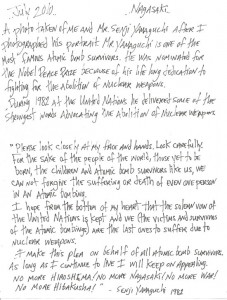 July 2010 NAGASAKI
A photo taken of me and Mr. Senji Yamaguchi after I
photographed his portrait. Mr Yamaguchi is one of the
most famous Atomic bomb survivors. He was nominated for
the Nobel Peace Prize because of his life long dedication to
fighting for the abolition of Nuclear weapons.
During 1982 at the United Nations he delivered some of the
strongest words Advocating the Abolition of Nuclear weapons
"Please look closely at my face and hands. Look carefully!
For the sake of the people of the world, those yet to be
born, the children and Atomic bomb survivors like us, we
can not forgive the suffering or death of even one person
in an Atomic bombing.
I hope from the bottom of my heart that the solemn vow of
the United Nations is kept and we (the victims and survivors
of the Atomic bombings) are the last ones to suffer due to
nuclear weapons.
I make this plea on behalf of all atomic bomb survivors.
As long as I continue to live I will keep on appealing.
NO MORE HIROSHIMA! NO MORE NAGASAKI! NO MORE WAR!
No More Hibakusha!" - Senji Yamaguchi
1982